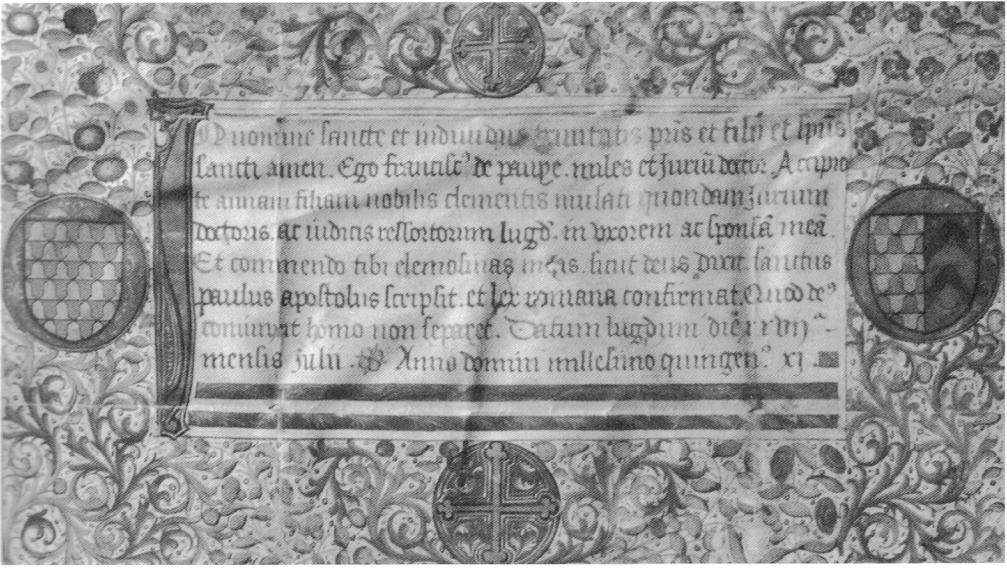 In nomine sancte et individue trinitatis pris et filii et spūs
sancti amen. Ego francisc' de pavye. miles et Juriū doctor. Accipio
te annam filiam nobilis clementis mulati quondam Jurium
doctoris. ac iudicis ressortorum lugd. in vxorem ac sponsā meā.
Et commendo tibi elemosinas meas. sicut deus dixit. sanctus
paulus apostolus scripsit. et lex romana confirmat. Quod de'
coniunxit homo non separet. Datum lugduni die
mensis Julii. Anno domini millesimo quingen' xj.